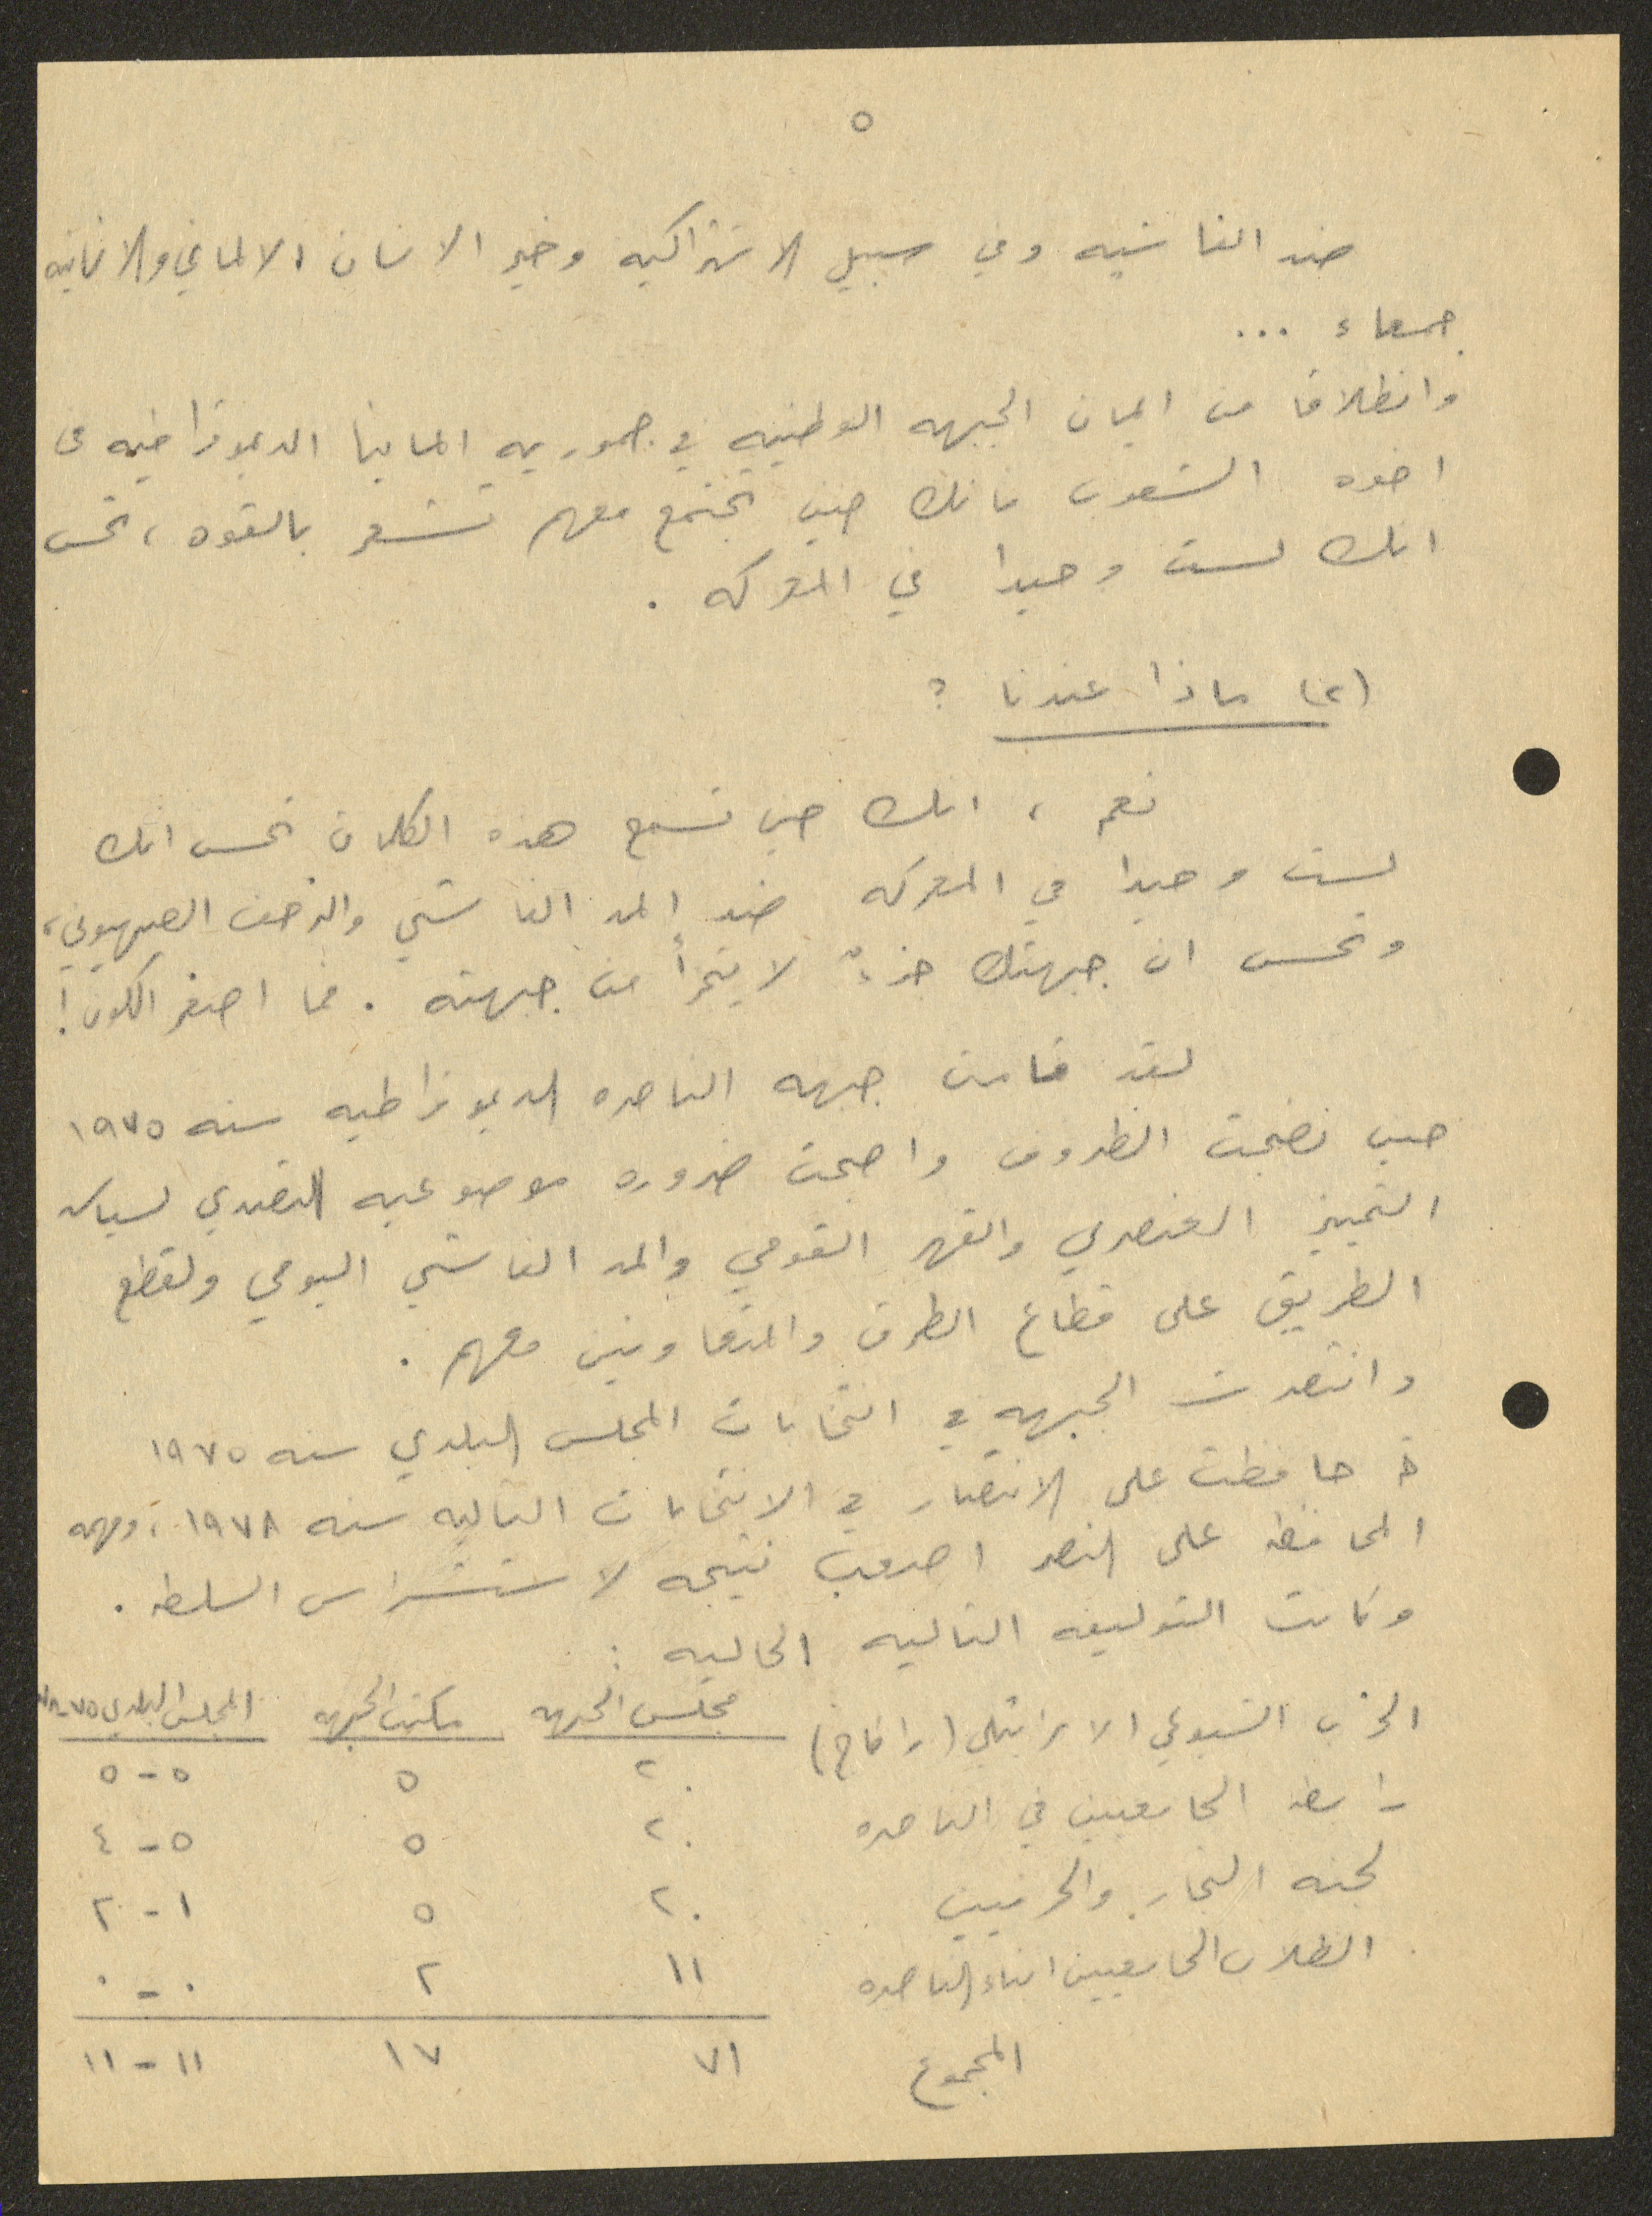 ٥
ضد الفاشيه وفي سبيل الاشتراكيه وخير الانسان الالماني والانسانيه
جمعاء ...
وانطلاقا من ايمان الجبهه الوطنيه في جمهوريه المانيا الديموقراطيه في
اخوه الشعوب فانك حين تجتمع معهم تشعر بالقوه ، تحس
انك لست وحيدا في المعركه .
(٢) ماذا عندنا ؟
نعم ، انك حين تسمع هذه الكلمات تحس انك
لست وحيدا في المعركه ضد المد الفاشي والزحف الصهيوني ،
وتحس ان جبهتك جزءٌ لا يتجزأ من جبهته . فما اصغر الكون !
لقد قامت جبهه الناصره الديموقراطيه سنه ١٩٧٥
حين نضجت الظروف واصبحت ضروره موضوعيه التصدي لسياسه
التمييز العنصري والقهر القومي والمد الفاشي اليومي ولقطع
الطريق على قطاع الطرق والمتعاونين معهم .
وانتصرت الجبهه في انتخابات المجلس البلدي سنه ١٩٧٥
ثم حافظت على الانتصار في الانتخابات التاليه سنه ١٩٧٨ ، ومهمه
المحافظه على النصر اصعب نتيجه لاستشراس السلطه .
وكانت التوليفه التاليه الحاليه :
مجلس الجبهه مكتب الجبهه المجلس البلدي ٧٥-٧٨
الحزب الشيوعي الاسرائيلي (راكاح) ٢٠ ٥ ٥-٥
رابطه الجامعيين في الناصره ٢٠ ٥ ٥-٤
لجنه التجار والحرفيين ٢٠ ٥ ١-٢
الطلاب الجامعيين ابناء الناصره ١١ ٢ ٠-٠
المجموع ٧١ ١٧ ١١-١١